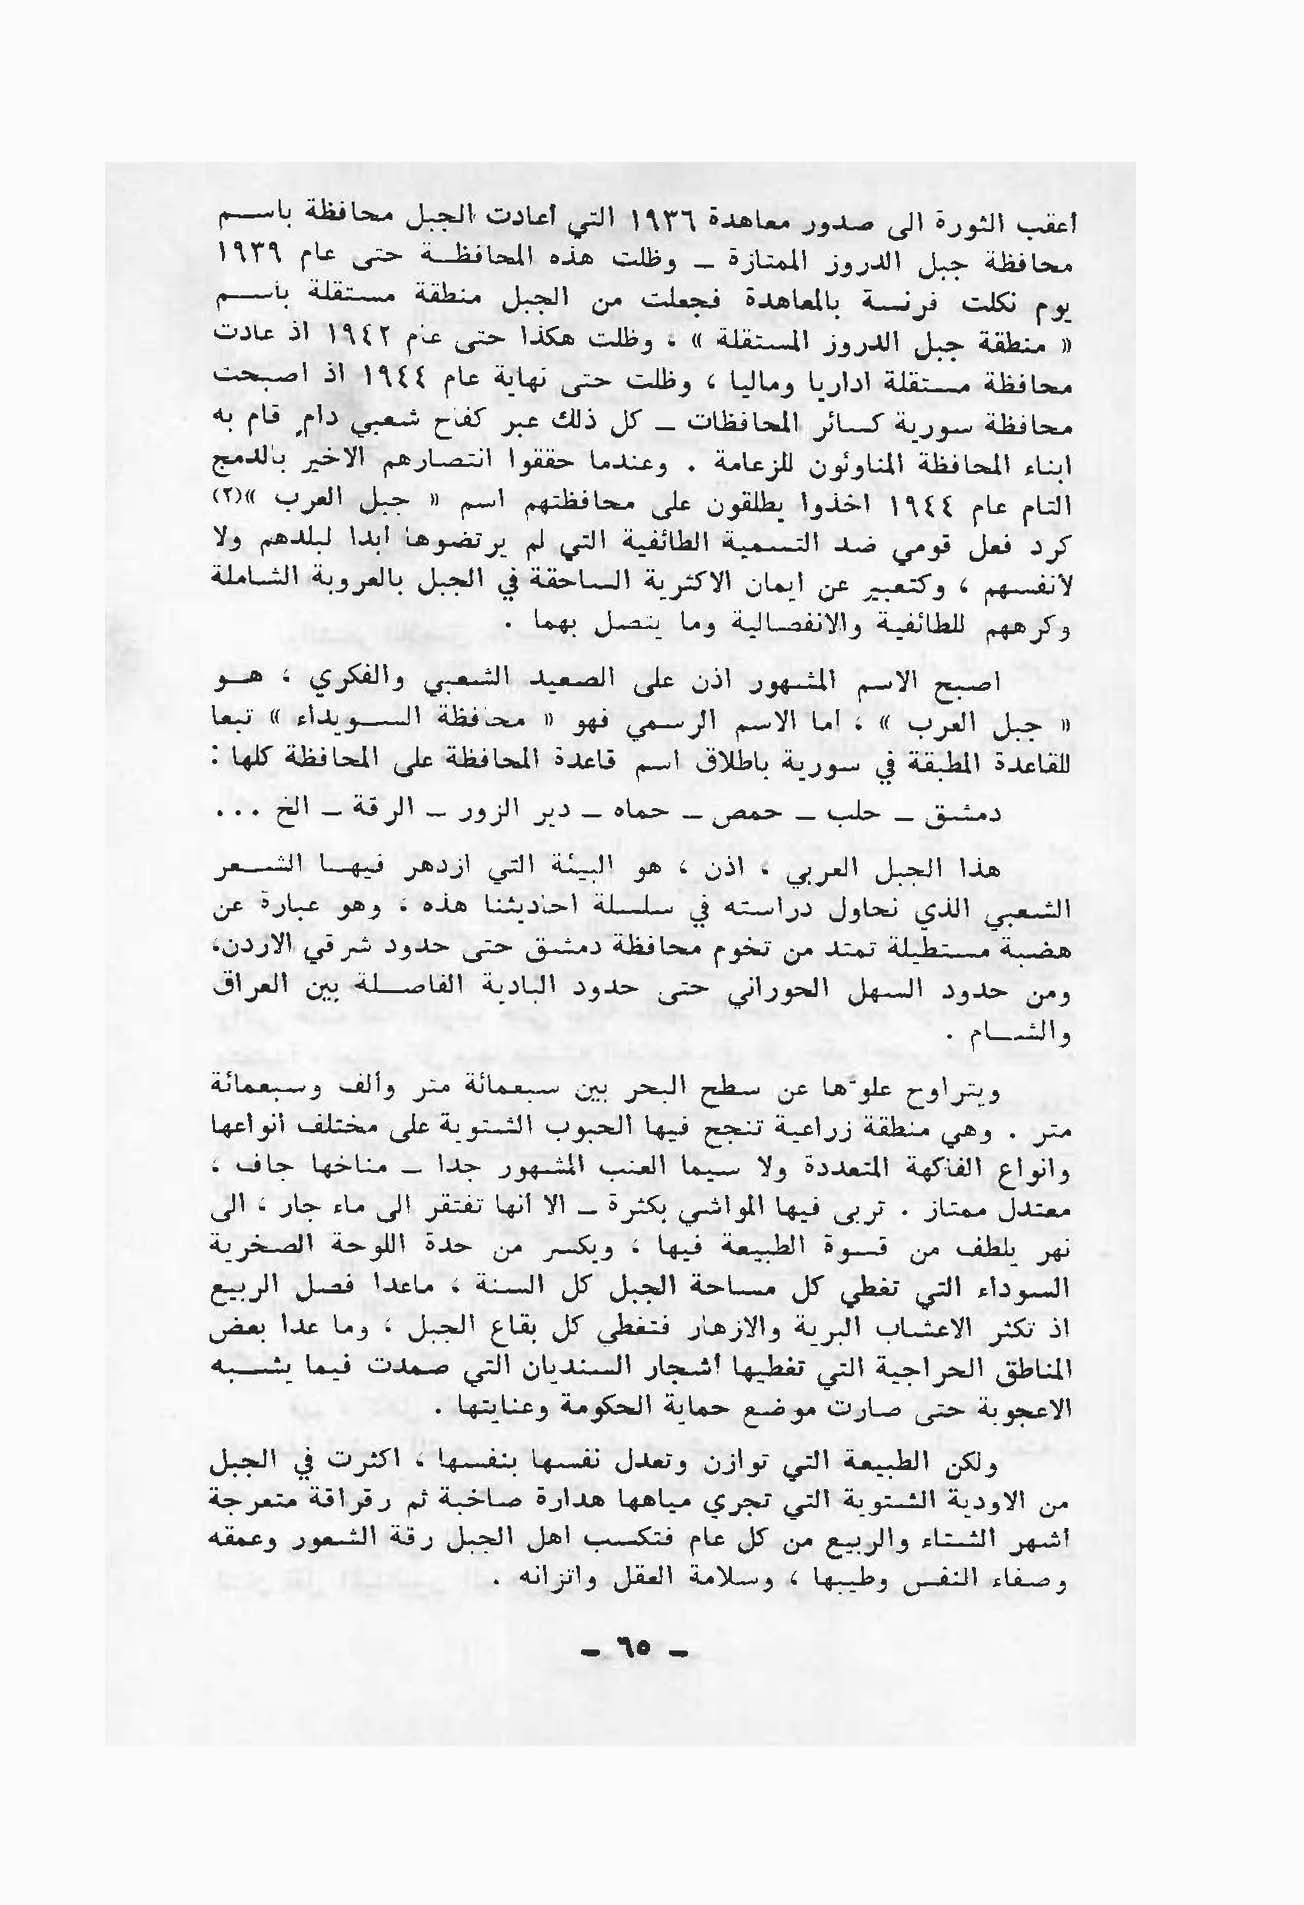 أعقب الثورة الى صدور معاهدة ١٩٣٦ التي أعادت الجبل محافظة باسم
محافظة جبل الدروز الممتازة ــ وظلت هذه المحافظة حتى عام ١٩٣٩
يوم نكلت فرنسة بالمعاهدة فجعلت من الجبل منطقة مستقلة باسم
« منطقة جبل الدروز المستقلة » ، وظلت هكذا حتى عام ١٩٤٢ اذ عادت
محافظة مستقلة اداريا وماليا ، وظلت حتى نهاية عام ١٩٤٤ اذ اصبحت
محافظة سورية كسائر المحافظات ــ كل ذلك عبر كفاح شعبي دامٍ قام به
ابناء المحافظة المناوئون للزعامة . وعندما حققوا انتصارهم الاخير بالدمج
التام عام ١٩٤٤ اخذوا يطلقون على محافظتهم اسم « جبل العرب »(٢)
كرد فعل قومي ضد التسمية الطائفية التي لم يرتضوها ابدا لبلدهم ولا
لأنفسهم ، وكتعبير عن ايمان الاكثرية الساحقة في الجبل بالعروبة الشاملة
وكرههم للطائفية والانفصالية وما يتصل بهما .
اصبح الاسم المشهور اذن على الصعيد الشعبي والفكري ، هو
« جبل العرب » ، اما الاسم الرسمي فهو « محافظة السويداء » تبعا
للقاعدة المطبقة في سورية باطلاق اسم قاعدة المحافظة على المحافظة كلها :
دمشق ــ حلب ــ حمص ــ حماه ــ دير الزور ــ الرقة ــ الخ ...
هذا الجبل العربي ، اذن ، هو البيئة التي ازدهر فيها الشعر
الشعبي الذي نحاول دراسته في سلسلة احاديثنا هذه ، وهو عبارة عن
هضبة مستطيلة تمتد من تخوم محافظة دمشق حتى حدود شرقي الاردن،
ومن حدود السهل الحوراني حتى حدود البادية الفاصلة بين العراق
والشام .
ويتراوح علوّها عن سطح البحر بين سبعمائة متر وألف وسبعمائة
متر . وهي منطقة زراعية تنجح فيها الحبوب الشتوية على مختلف أنواعها
وانواع الفاكهة المتعددة ولا سيما العنب المشهور جدا ــ مناخها جاف ،
معتدل ممتاز . تربى فيها المواشي بكثرة ــ الا أنها تفتقر الى ماء جار ، الى
نهر يلطف من قسوة الطبيعة فيها ، ويكسر من حدة اللوحة الصخرية
السوداء التي تغطي كل مساحة الجبل كل السنة ، ماعدا فصل الربيع
اذ تكثر الاعشاب البرية والازهار فتغطي كل بقاع الجبل ، وما عدا بعض
المناطق الحراجية التي تغطيها أشجار السنديان التي صمدت فيما يشبه
الاعجوبة حتى صارت موضع حماية الحكومة وعنايتها .
ولكن الطبيعة التي توازن وتعدل نفسها بنفسها ، اكثرت في الجبل
من الاودية الشتوية التي تجري مياهها هدارة صاخبة ثم رقراقة متعرجة
أشهر الشتاء والربيع من كل عام فتكسب اهل الجبل رقة الشعور وعمقه
وصفاء النفس وطيبها ، وسلامة العقل واتزانه .
ــ ٦٥ ــ